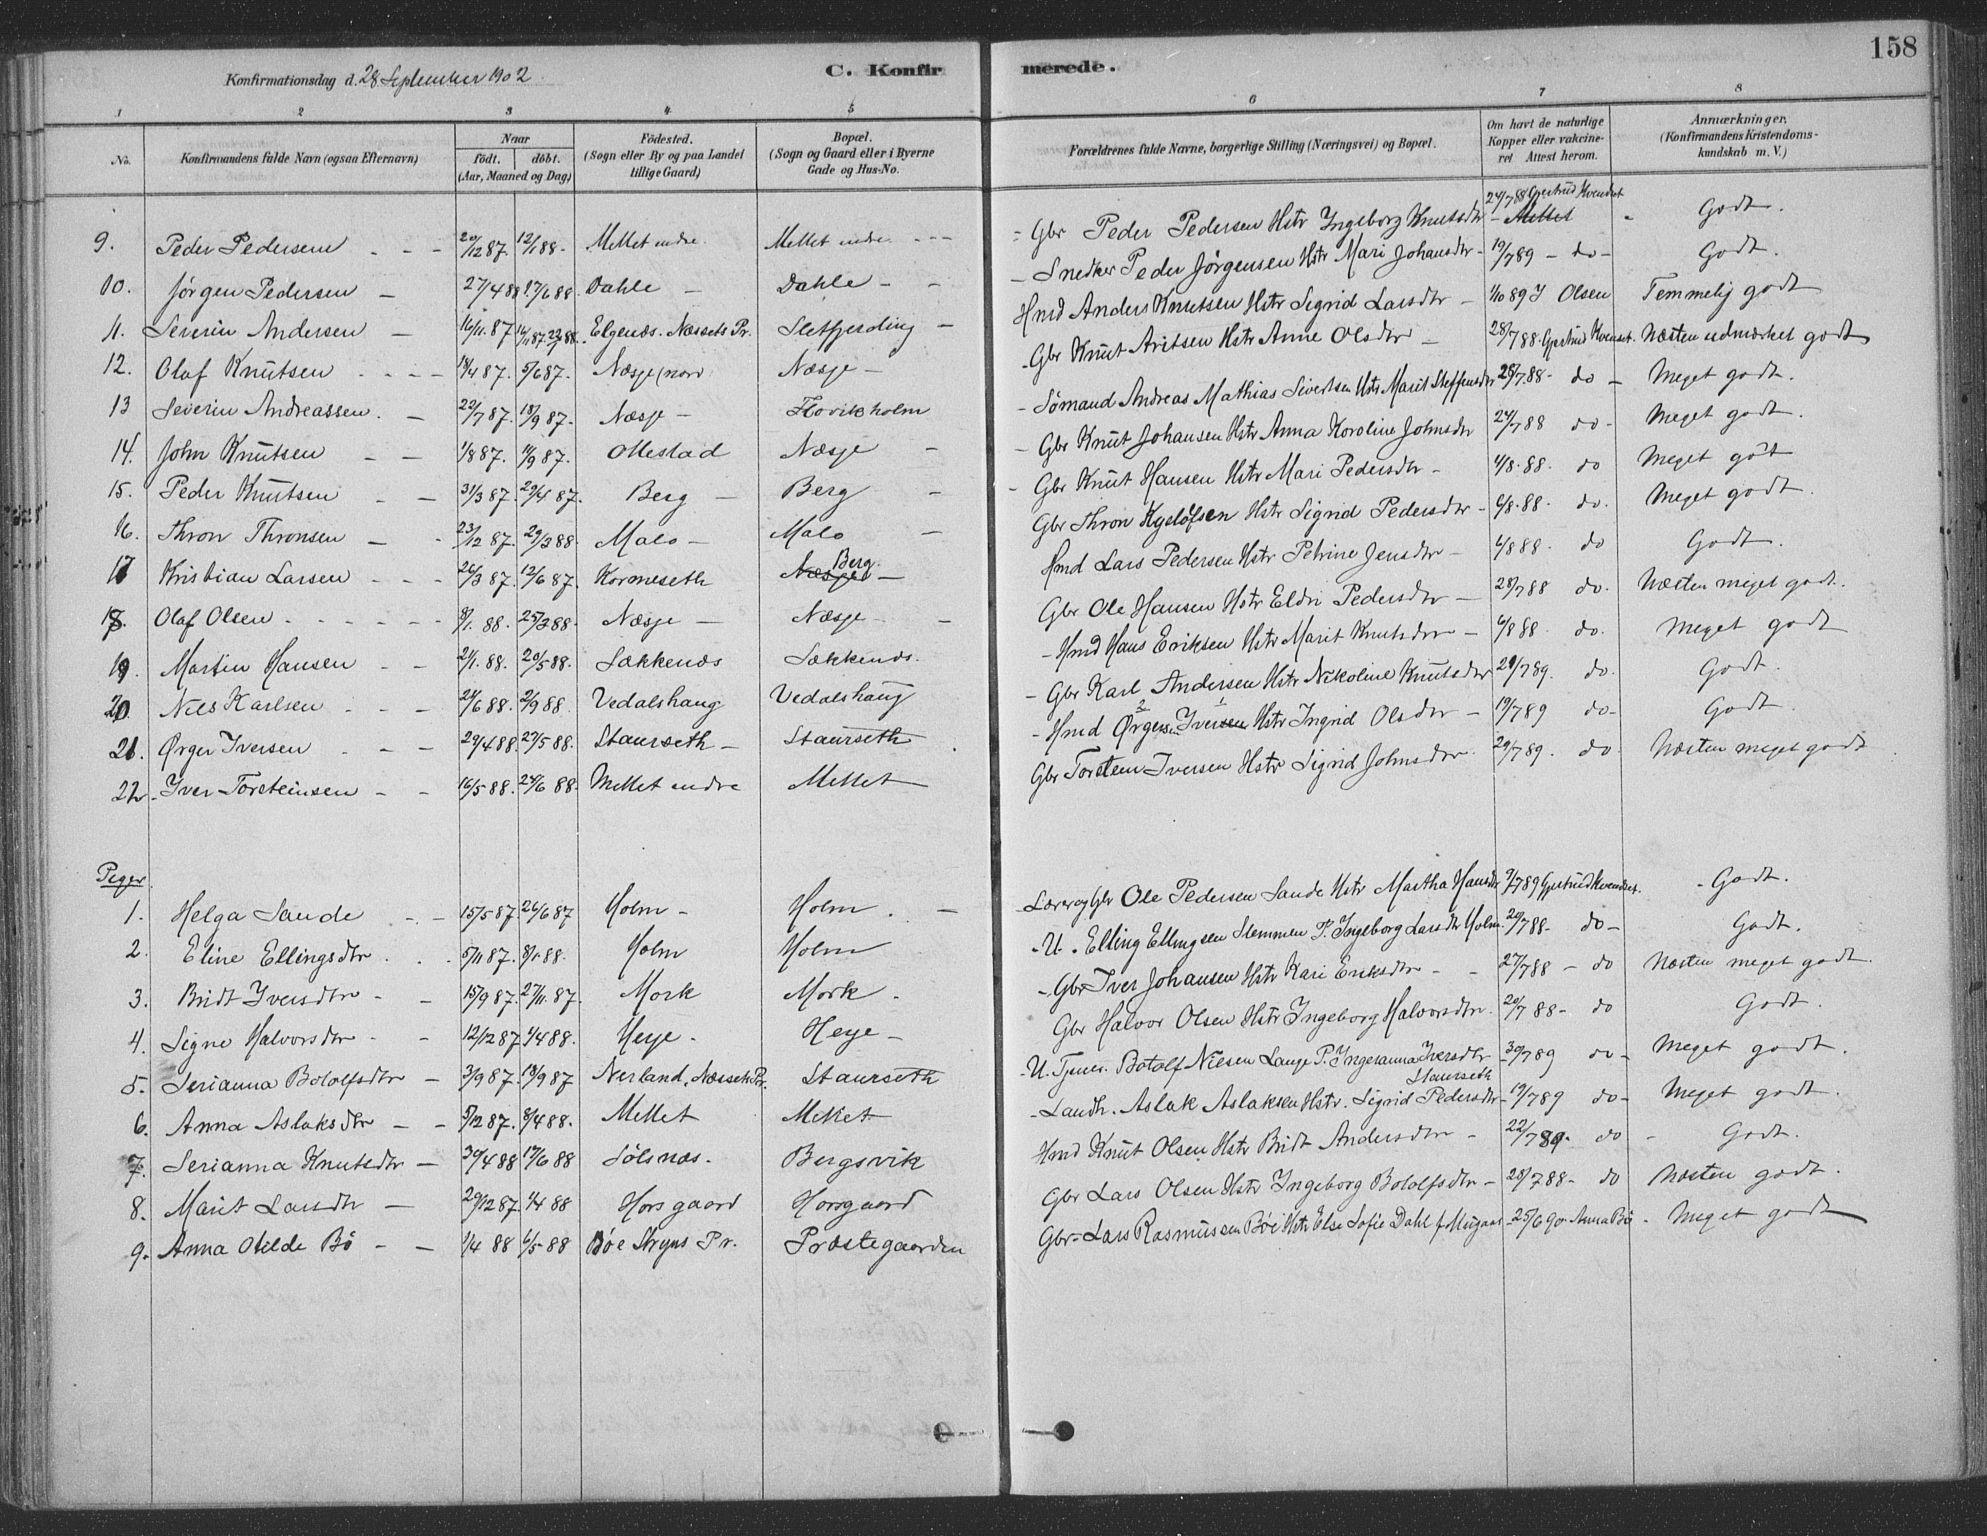 158
Konfirmationsdag d. 28 September 1902.
C. Konfir merede.
1 2 3 4 5 6 7 8
No. Konfirmandens fulde Navn (ogsaa Efternavn) Naar födt. döbt. (Aar, Maaned og Dag) Födested. (Sogn eller By og paa Landet tillige Gaard) Bopæl. (Sogn og Gaard eller i Byerne Gade og Hus-No. Forældrenes fulde Navne, borgerlige Stilling (Næringsvei) og Bopæl. Om havt de naturlige Kopper eller vakcineret Attest herom. Anmærkninger. (Konfirmandens Kristendomskundskab m. V.)
9. Peder Pedersen - - - 20/12 87. 12/1 88. Mettet indre. Mettet indre. - - - Gbr Peder Pedersen Hstr Ingeborg Knutsdtr 24/7 88 Gjertrud Kvendset - Mettet Godt.
10. Jørgen Pedersen - 27/4 88 17/6 88. Dahle - Dahle - - - Snedker Peder Jørgensen Hstr Mari Johansdtr - 19/7 89 - do - Godt.
11. Severin Andersen - 16/11. 87. 16/11 87. 22/1 88. Elgenæs. Næssets Pr. Sletfjerding - Hmd Anders Knutsen Hstr Sigrid Larsdtr - 1/10 89 J Olsen Temmelig godt
12. Olaf Knutsen - - - - 18/4 87. 5/6 87. Næsje nor Næsje - - Gbr Knut Aritsen Hstr Anne Olsdtr - 28/7 88 Gjertrud Kvenset. Næsten udmærket godt
13 Severin Andreassen. - 22/7 87. 18/9 87. Næsje - Hovikholm - Sømand Andreas Mathias Sivertsen Hstr Marit Steffensdtr 28/7 88 - do - Meget godt.
14. John Knutsen - - 1/8 87. 11/9 87. Ollestad Næsje - - Gbr Knut Johansen Hstr Anna Karoline Johnsdtr 24/7 88 do - Meget godt.
15. Peder Knutsen - - 31/3 87. 29/4 87. Berg - Berg - - Gbr Knut Hansen Hstr Mari Pedersdtr - 4/8. 88. do Meget godt
16. Thron Thronsen - - 23/12 87. 29/3 88. Malo - Malo - Gbr Thron Kjeløfsen Hstr Sigrid Pedersdtr - 6/8. 88. do. Meget godt.
17 Kristian Larsen - - - 26/3 87. 12/6 87. Korneseth Næsje Berg - Hmd Lars Pedersen Hstr Petrine Jensdtr - 4/8 88. do Godt.
18. Olaf Olsen - - - - - - 8/1. 88. 25/3 88. Næsje - Næsje - - Gbr Ole Hansen Hstr Eldri Pedersdtr - 28/7 88 do. Næsten meget godt.
19. Martin Hansen - - 21/1. 88. 20/5 88. Sækkenæs Sækkenæs. - Hmd Hans Eriksen Hstr Marit Knutsdtr - 6/8 88. do. Meget godt
20 Nils Karlsen - - - 24/6 88. 2/9 88. Vedalshaug Vedalshaug - Gbr Karl Andersen Hstr Nikoline Knutsdtr 29/7 89. do. Godt.
21. Ørger Iversen - - - 29/4 88. 27/5 88. Staurseth - Staurseth - Hmd Ørgersen Iversen Hstr Ingrid Olsdtr - 19/7 89 do - Godt.
22. Iver Torsteinsen - - 16/5 88. 24/6 88. Mettet indre Mettet Gbr Torstein Iversen Hstr Sigrid Johnsdtr 29/7 89. do. Næsten meget godt
Piger
1. Helga Sande - - 15/5 87. 26/6 87 Holm - Holm. - - Lærer og Gbr Ole Pedersen Sande Hstr Martha Hansdtr 7/7 89 Gjertrud Kvendset. - Godt.
2. Eline Ellingsdtr. - - 5/11 87. 8/1. 88. Holm Holm - U. Elling Ellingsen Slemmen P. Ingeborg Larsdtr Holm. 20/7 88 - do - Godt.
3. Bridt Iversdtr - - 15/9 87. 27/11. 87. Mork Mork - - Gbr Iver Johansen Hstr Kari Eriksdtr - - 27/7 88 - do Næsten meget godt.
4. Signe Halvorsdtr - - 12/12 87. 1/4 88. Heye. Heye - Gbr Halvor Olsen Hstr Ingeborg Halvorsdtr. 20/7 88 - do Godt.
5. Serianna Botolfsdtr - 3/9 87. 18/9 87 Nerland. Næssets Pr. Staurseth - U. Tjener. Botolf Nilsen Lange P. Ingeranna Iversdtr Staurseth - 30/7 89 do - Meget godt.
6. Anna Aslaksdtr - - 5/12 87. 8/4 88. Mettet Mettet - Landh. Aslak Aslaksen Hstr. Sigrid Pedersdtr - 19/7 89 do - Meget godt.
7. Serianna Knutsdtr - 30/4 88 17/6 88 Sølsnæs. Bergsvik Hmd Knut Olsen Hstr Bridt Andersdtr - 22/7 89. do - Godt.
8. Marit Larsdtr - 29/12 87. 1/4 88 Horsgaard Horsgaard Gbr Lars Olsen Hstr Ingeborg Botolfsdtr - 28/7. 88 - do Næsten godt.
9. Anna Otilde Bö - - 1/4 88 6/5 88 Bøe Stryns Pr. Præstegaarden Gbr - Lars Rasmussen Bøe Hstr Else Sofie Dahl - 25/6 90 - Anna Bö - Meget godt